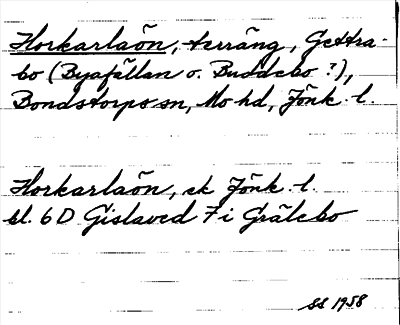 Horkarlaön, terräng, Gettra-
bo (Byafällan o. Buddebo?),
Bondstorps sn, Mo hd, Jönk. l.
Horkarlaön, ek Jönk. l.
bl. 6D Gislaved 7i Grälebo
SS 1958